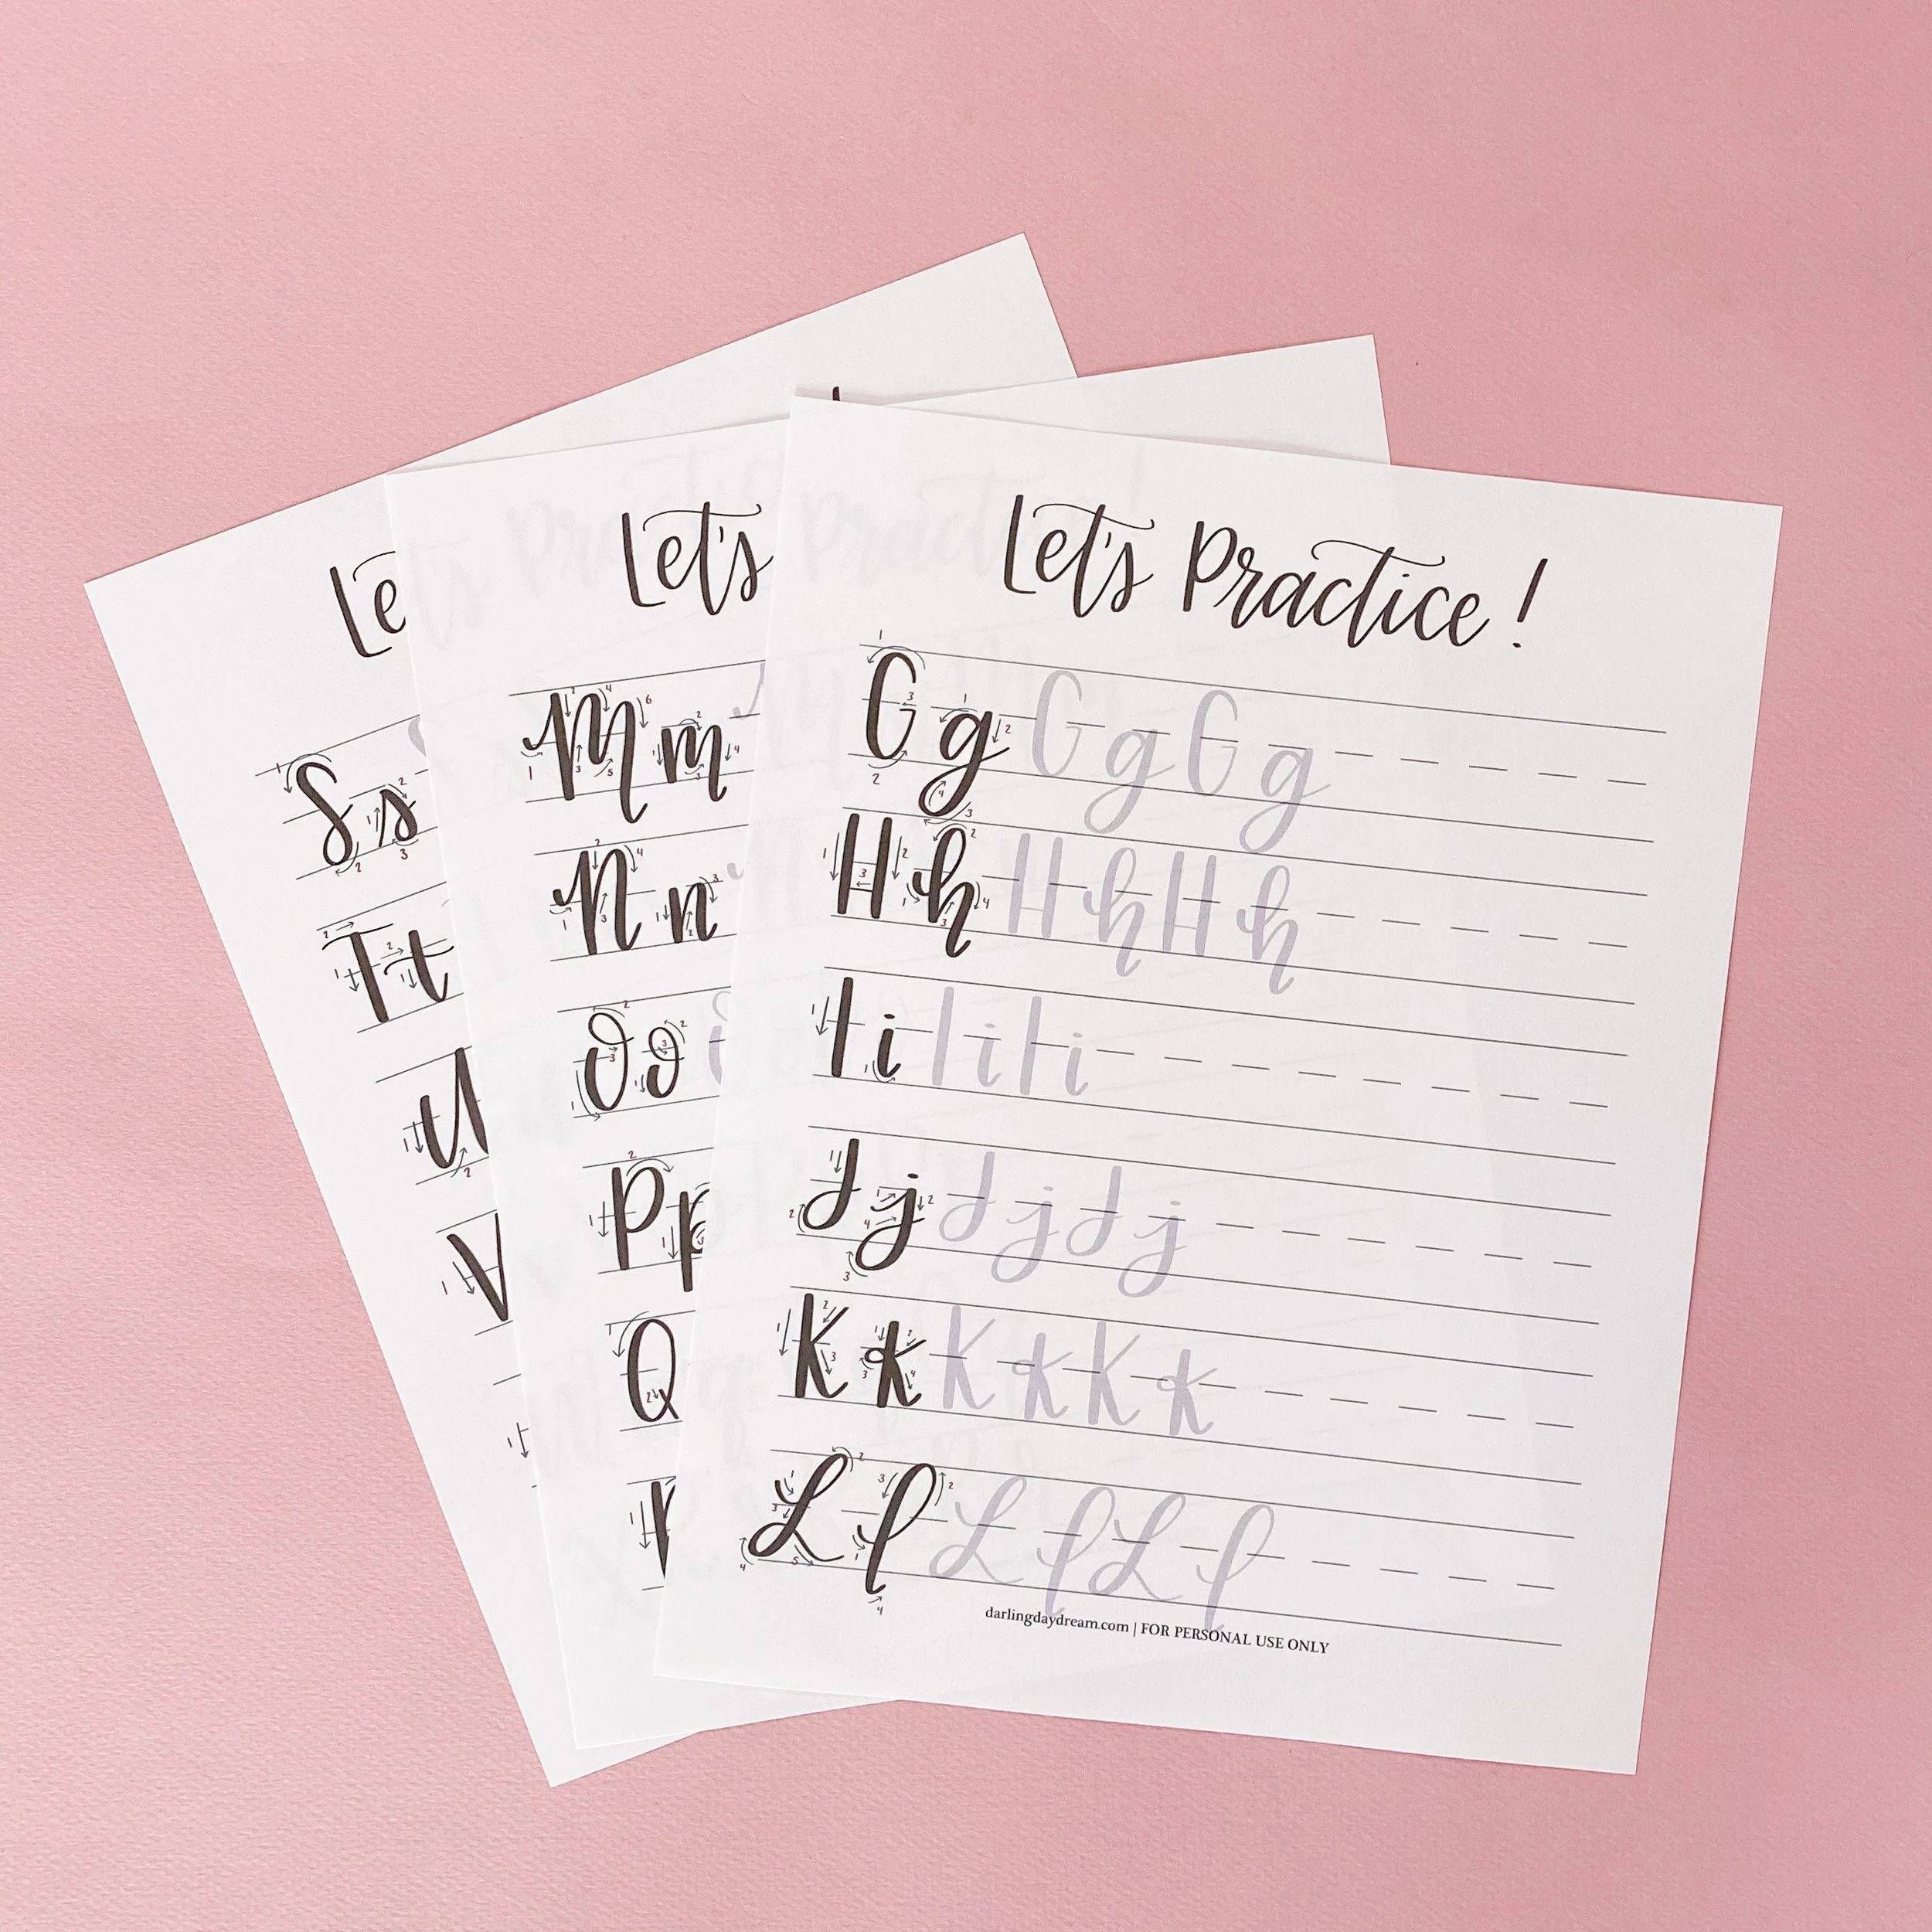 Let's Practice!
Gg Gg Gg
Hh Hh Hh
Ii Ii Ii
Jj Jj Jj
Kk Kk Kk
Ll Ll Ll
darlingdaydream.com | FOR PERSONAL USE ONLY
Let's
Mm
Nn
Oo
Pp
Q
Le
Ss
Tt
U
V